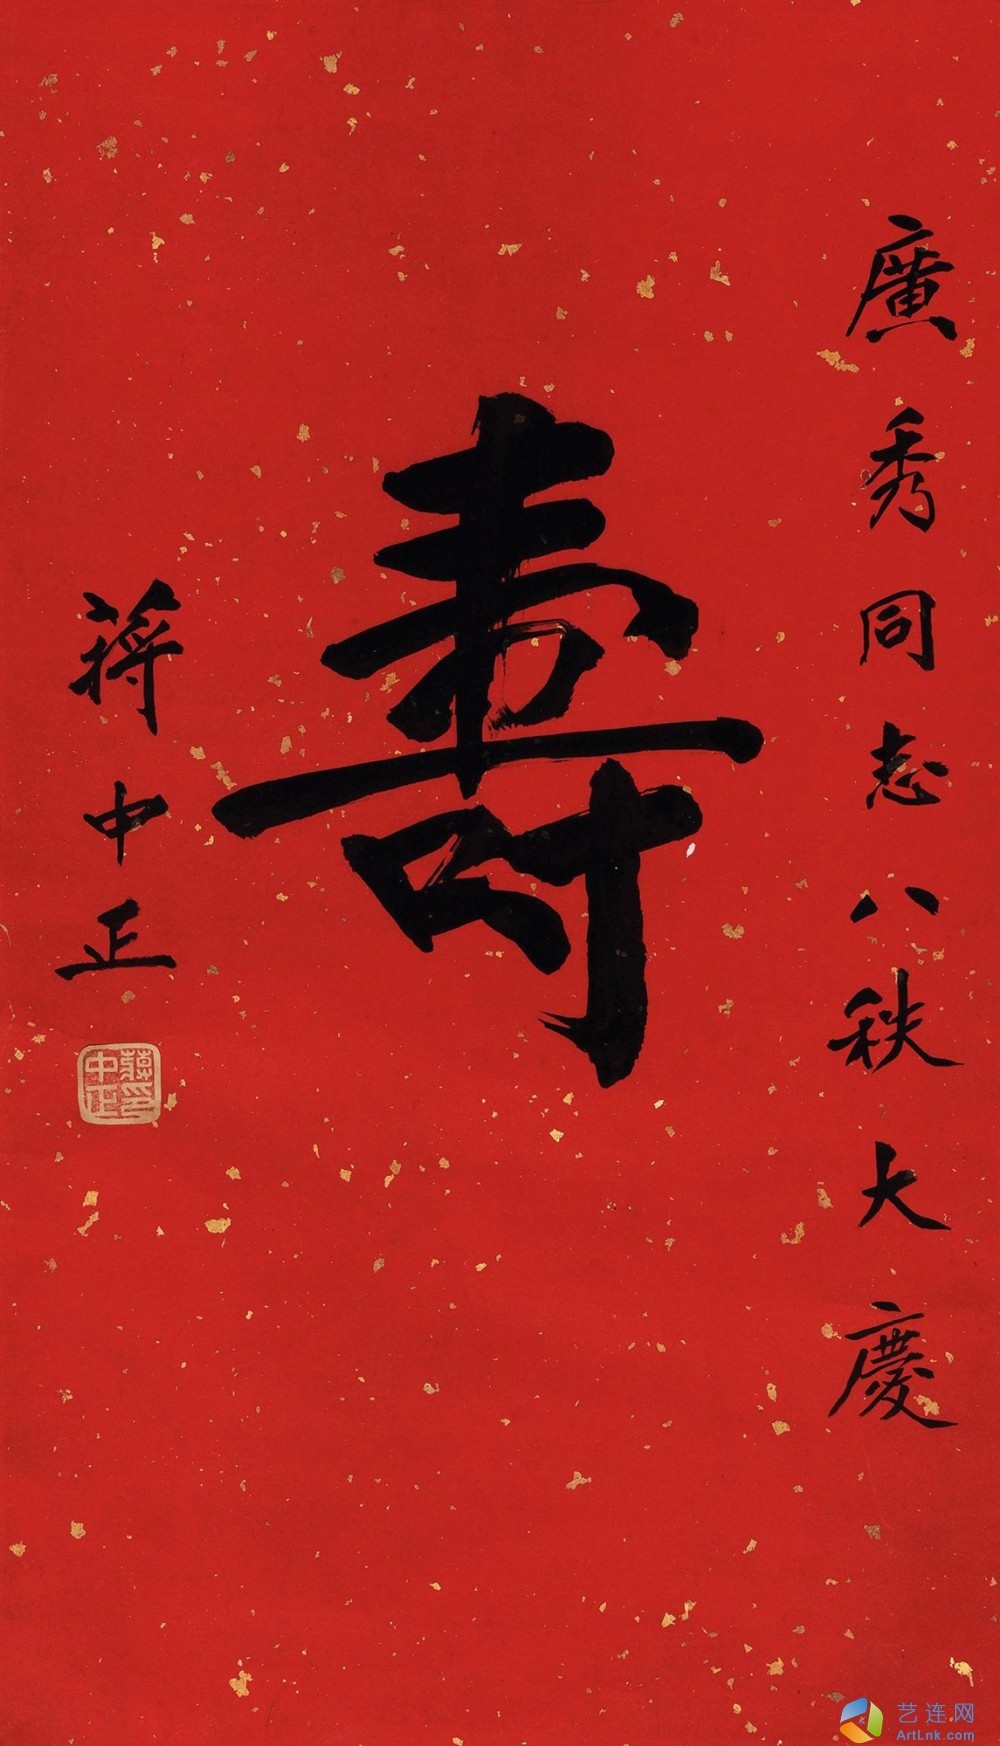 廣秀同志八秩大慶
壽
蔣中正
蔣中正印
艺连网
ArtLnk.com